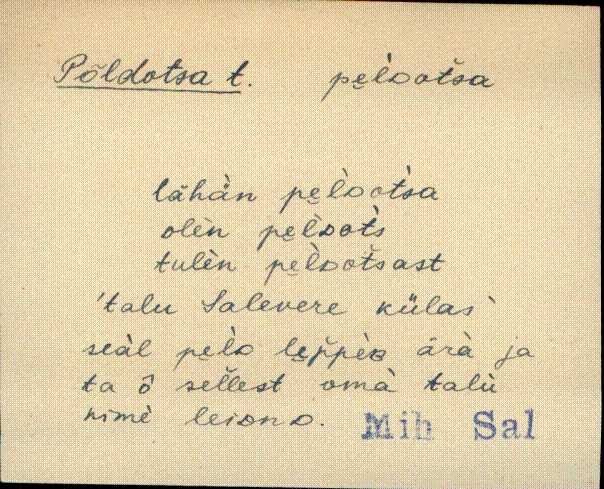 Põldotsa t. pe̮ʟ̀ᴅotša
lähän pe̮ʟ̀ᴅotsa
olèn pe̮ʟ̀ᴅots
tulèn pe̮ʟ̀ᴅotšast
'talu Salevere külas'
seàl pe̮ʟ̀ᴅ le̮p̌pèʙ ärà ja
ta ô sel̆lest omà talù
nimè leiᴅnᴅ.
Mih Sal